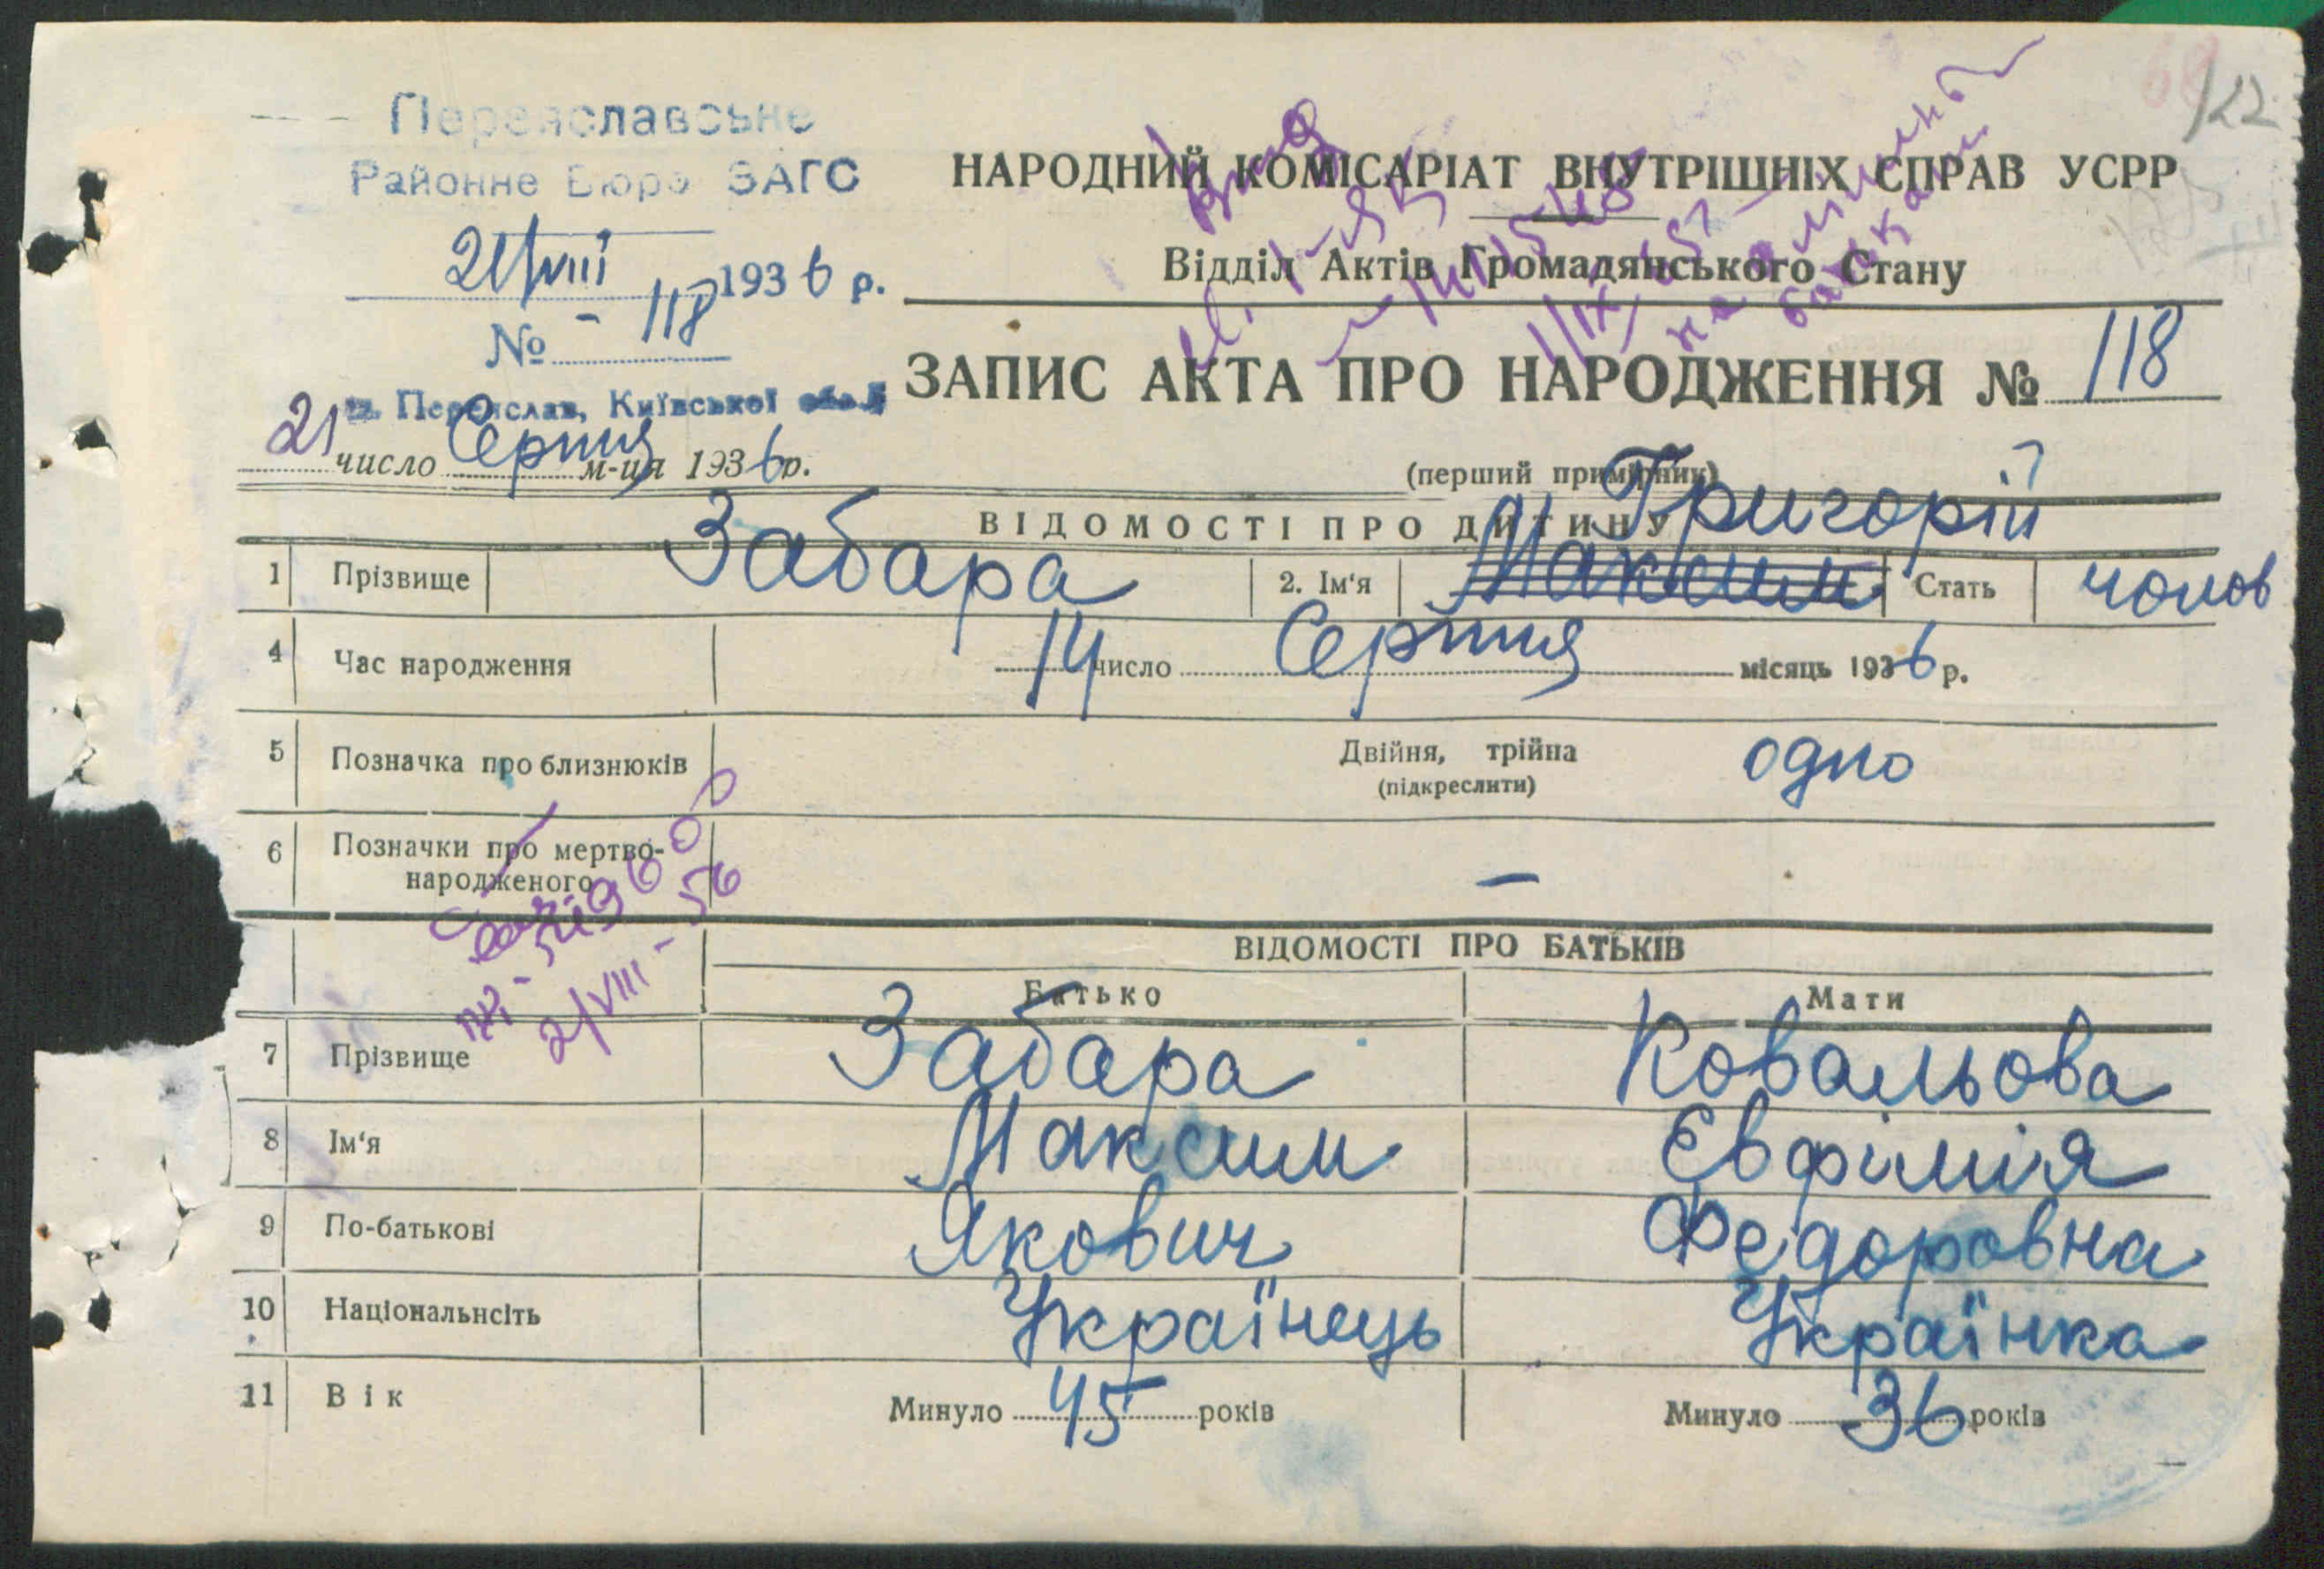 Переяславське
Районне Бюро ЗАГС
21/VIII 1936 р.
№ - 118
м. Переяслав, Київської обл.
122
НАРОДНИЙ КОМІСАРІАТ ВНУТРІШНІХ СПРАВ УСРР
Відділ Актів Громадянського Стану
ЗАПИС АКТА ПРО НАРОДЖЕННЯ № 118
21 число Серпня м-ця 1936 р.
(перший примірник)
ВІДОМОСТІ ПРО ДИТИНУ
Григорій
1 Прізвище Забара 2. Ім'я Максим Стать чолов
4 Час народження 14 число Серпня місяць 1936 р.
5 Позначка про близнюків Двійня, трійна одно
(підкреслити)
6 Позначки про мертво-
народженого —
2/VIII - 56
ВІДОМОСТІ ПРО БАТЬКІВ
Батько Мати
7 Прізвище Забара Ковальова
8 Ім'я Максим Евфімія
9 По-батькові Якович Федоровна
10 Національнсіть Українець Українка
11 Вік Минуло 45 років Минуло 36 років